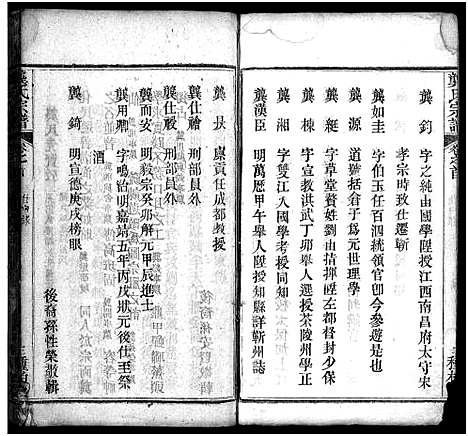 龔氏宗譜
卷之首
龔鈞 字之純由國學陞授江西南昌府太守宋
孝宗時致仕遷蘄
龔如圭 字伯玉任百泗統領官卽今參將是也
龔源 道號括翁子爲元世理學
龔綎 字草堂贅姓劉由指揮陞左都督封少保
龔棟 字敦宣洪武丁卯舉人選授茶陵州學正
龔湘 字雙江入國學考授同知
龔漢臣 明萬厯甲午舉人陞授知縣詳蘄州誌
龔扶 廩貢任成都教授
龔仕禬 刑部員外
龔仕祿 刑部員外
龔而安 明毅宗癸卯解元甲辰進士
龔用卿 字鳴治明嘉靖五年丙戌狀元後仕至祭
酒
龔錡 明宣德庚戌榜眼
後裔孫性榮敬輯
龔氏宗譜